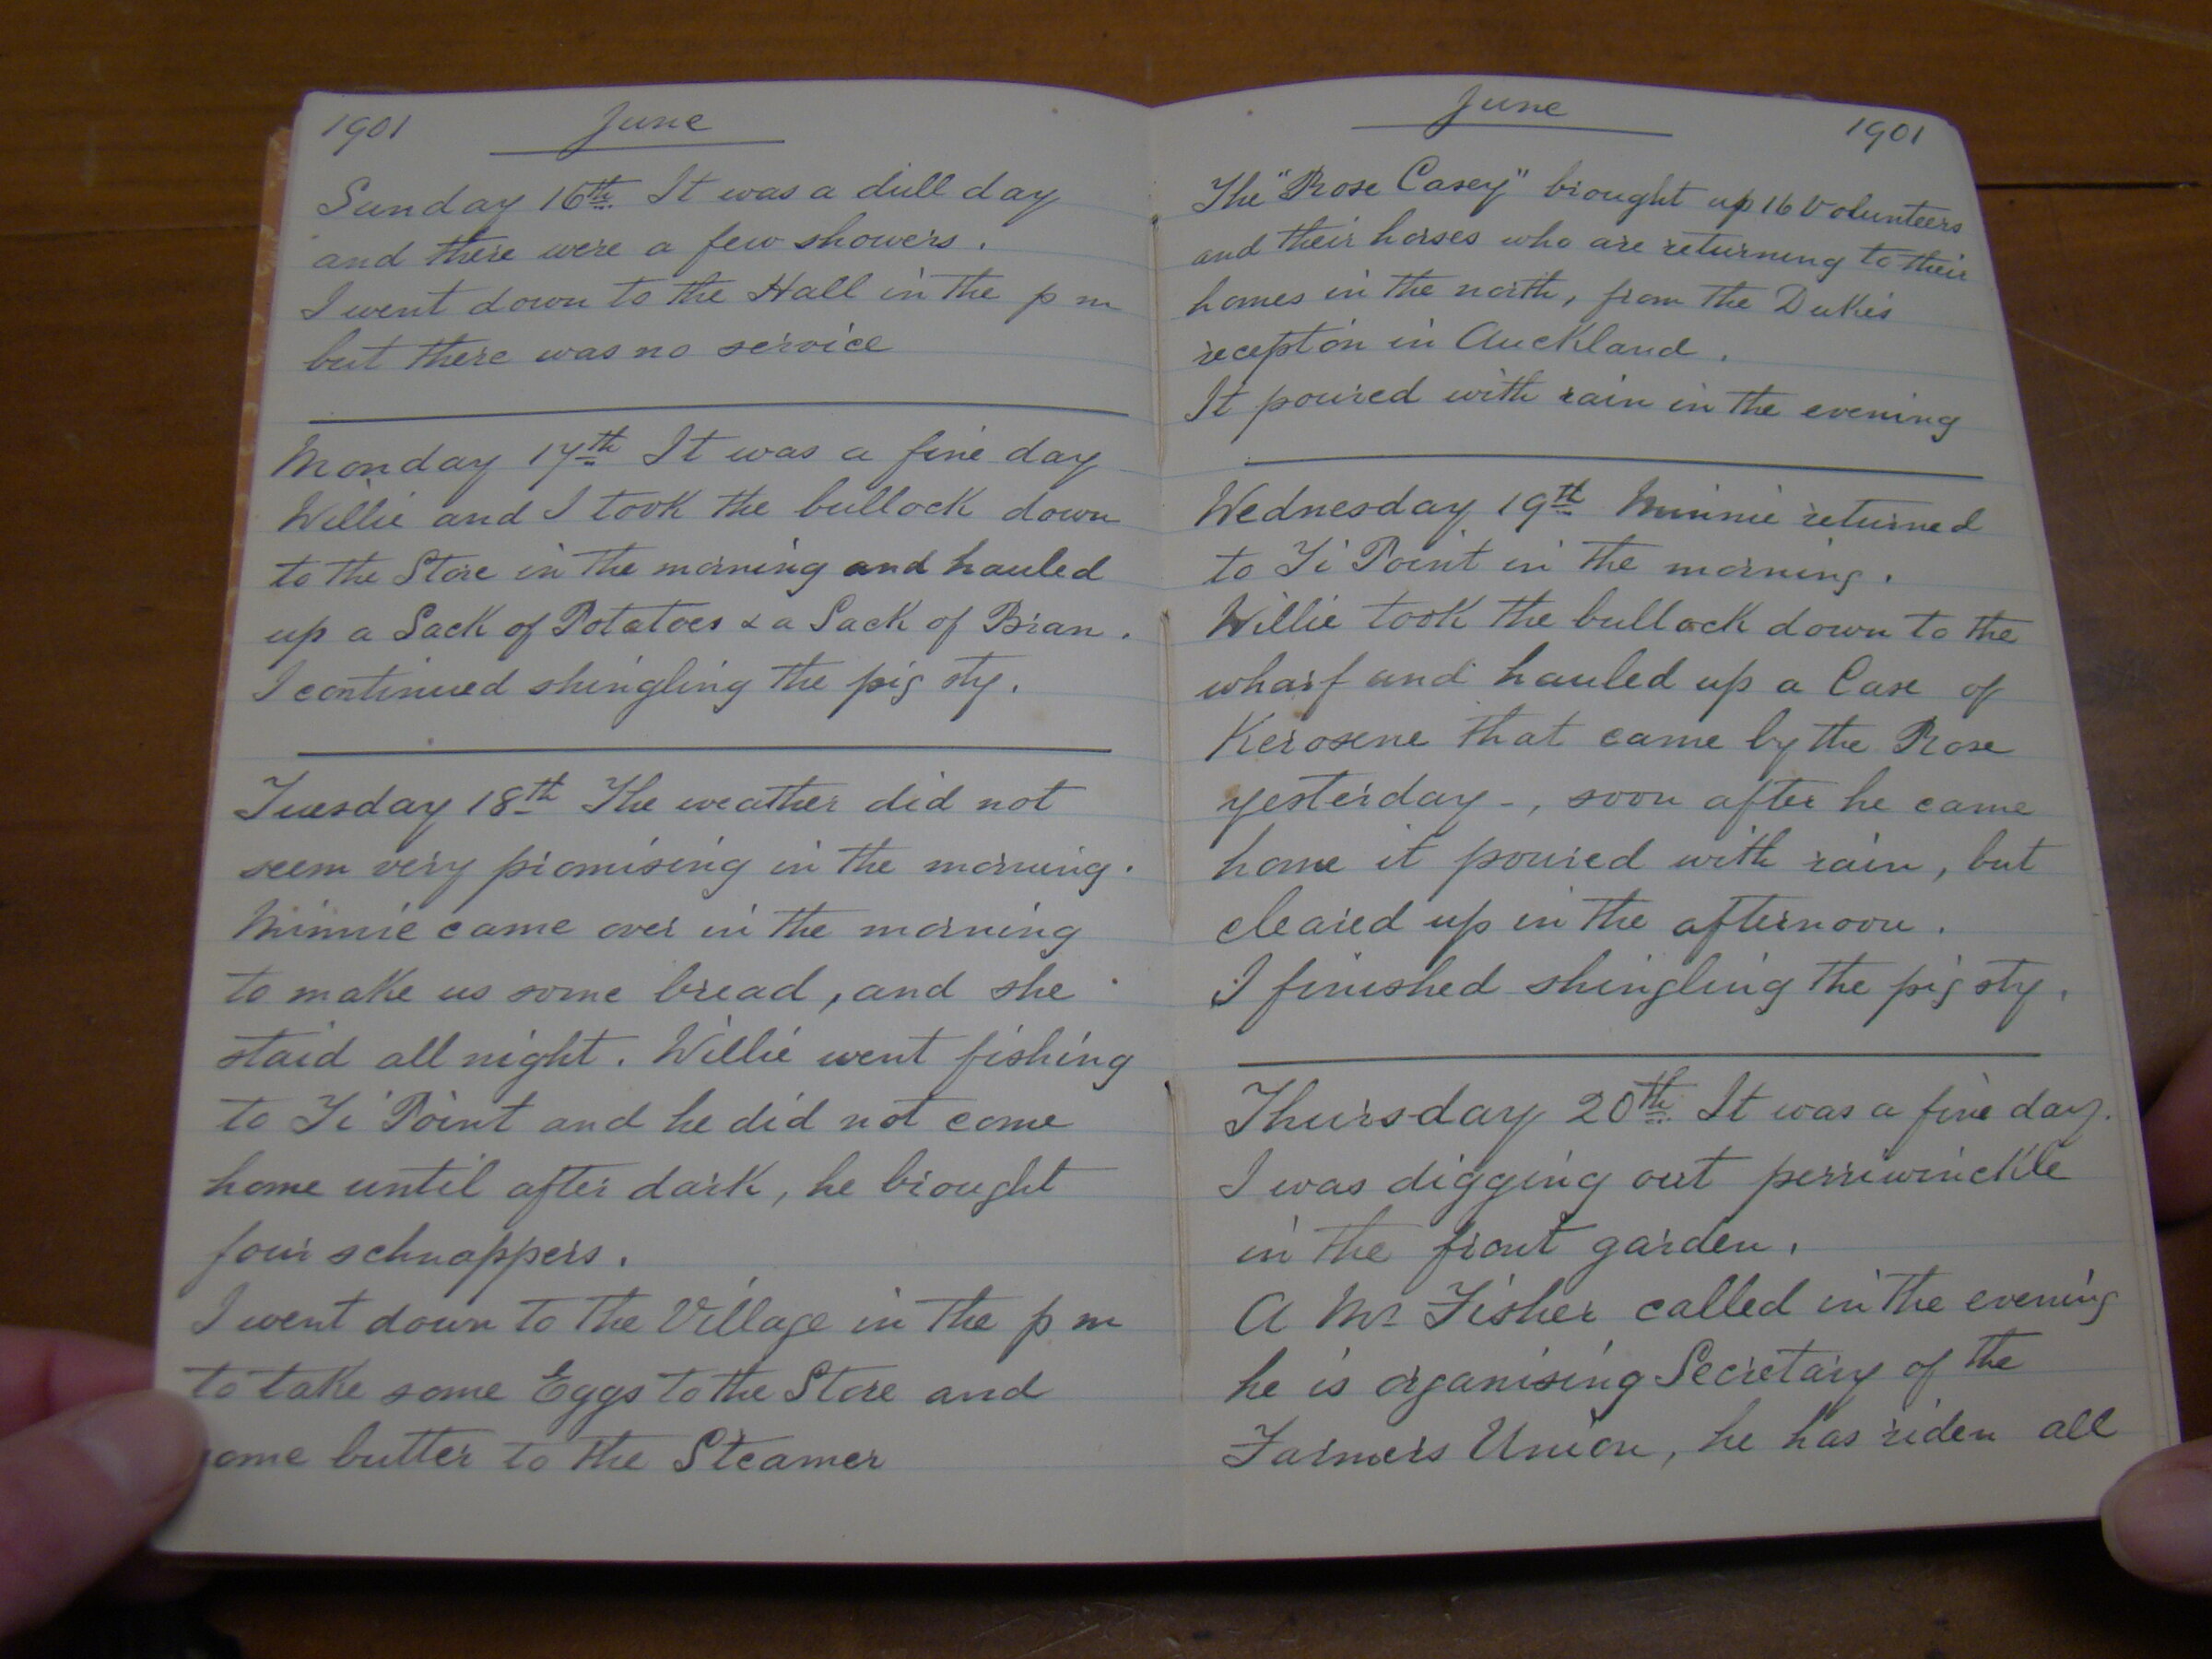 1901 June
Sunday 16th It was a dull day
and there were a few showers.
I went down to the Hall in the p m
but there was no service
Monday 17th It was a fine day
Willie and I took the bullock down
to the Store in the morning and hauled
up a Sack of Potatoes & a Sack of Bran.
I continued shingling the pig sty.
Tuesday 18th The weather did not
seem very promising in the morning.
Minnie came over in the morning
to make us some bread, and she
staid all night. Willie went fishing
to Ti Point and he did not come
home until after dark, he brought
four schnappers.
I went down to the Village in the p m
to take some Eggs to the Store and
some butter to the Steamer
June 1901
The "Rose Casey" brought up 16 Volunteers
and their horses who are returning to their
homes in the north, from the Duke's
reception in Auckland.
It poured with rain in the evening
Wednesday 19th Minnie returned
to Ti Point in the morning.
Willie took the bullock down to the
wharf and hauled up a Case of
Kerosene that came by the Rose
yesterday -, soon after he came
home it poured with rain, but
cleared up in the afternoon.
I finished shingling the pig sty.
Thursday 20th It was a fine day.
I was digging out perriwinckle
in the front garden.
A Mr Fisher called in the evening
he is organising Secretary of the
Farmers Union, he has riden all